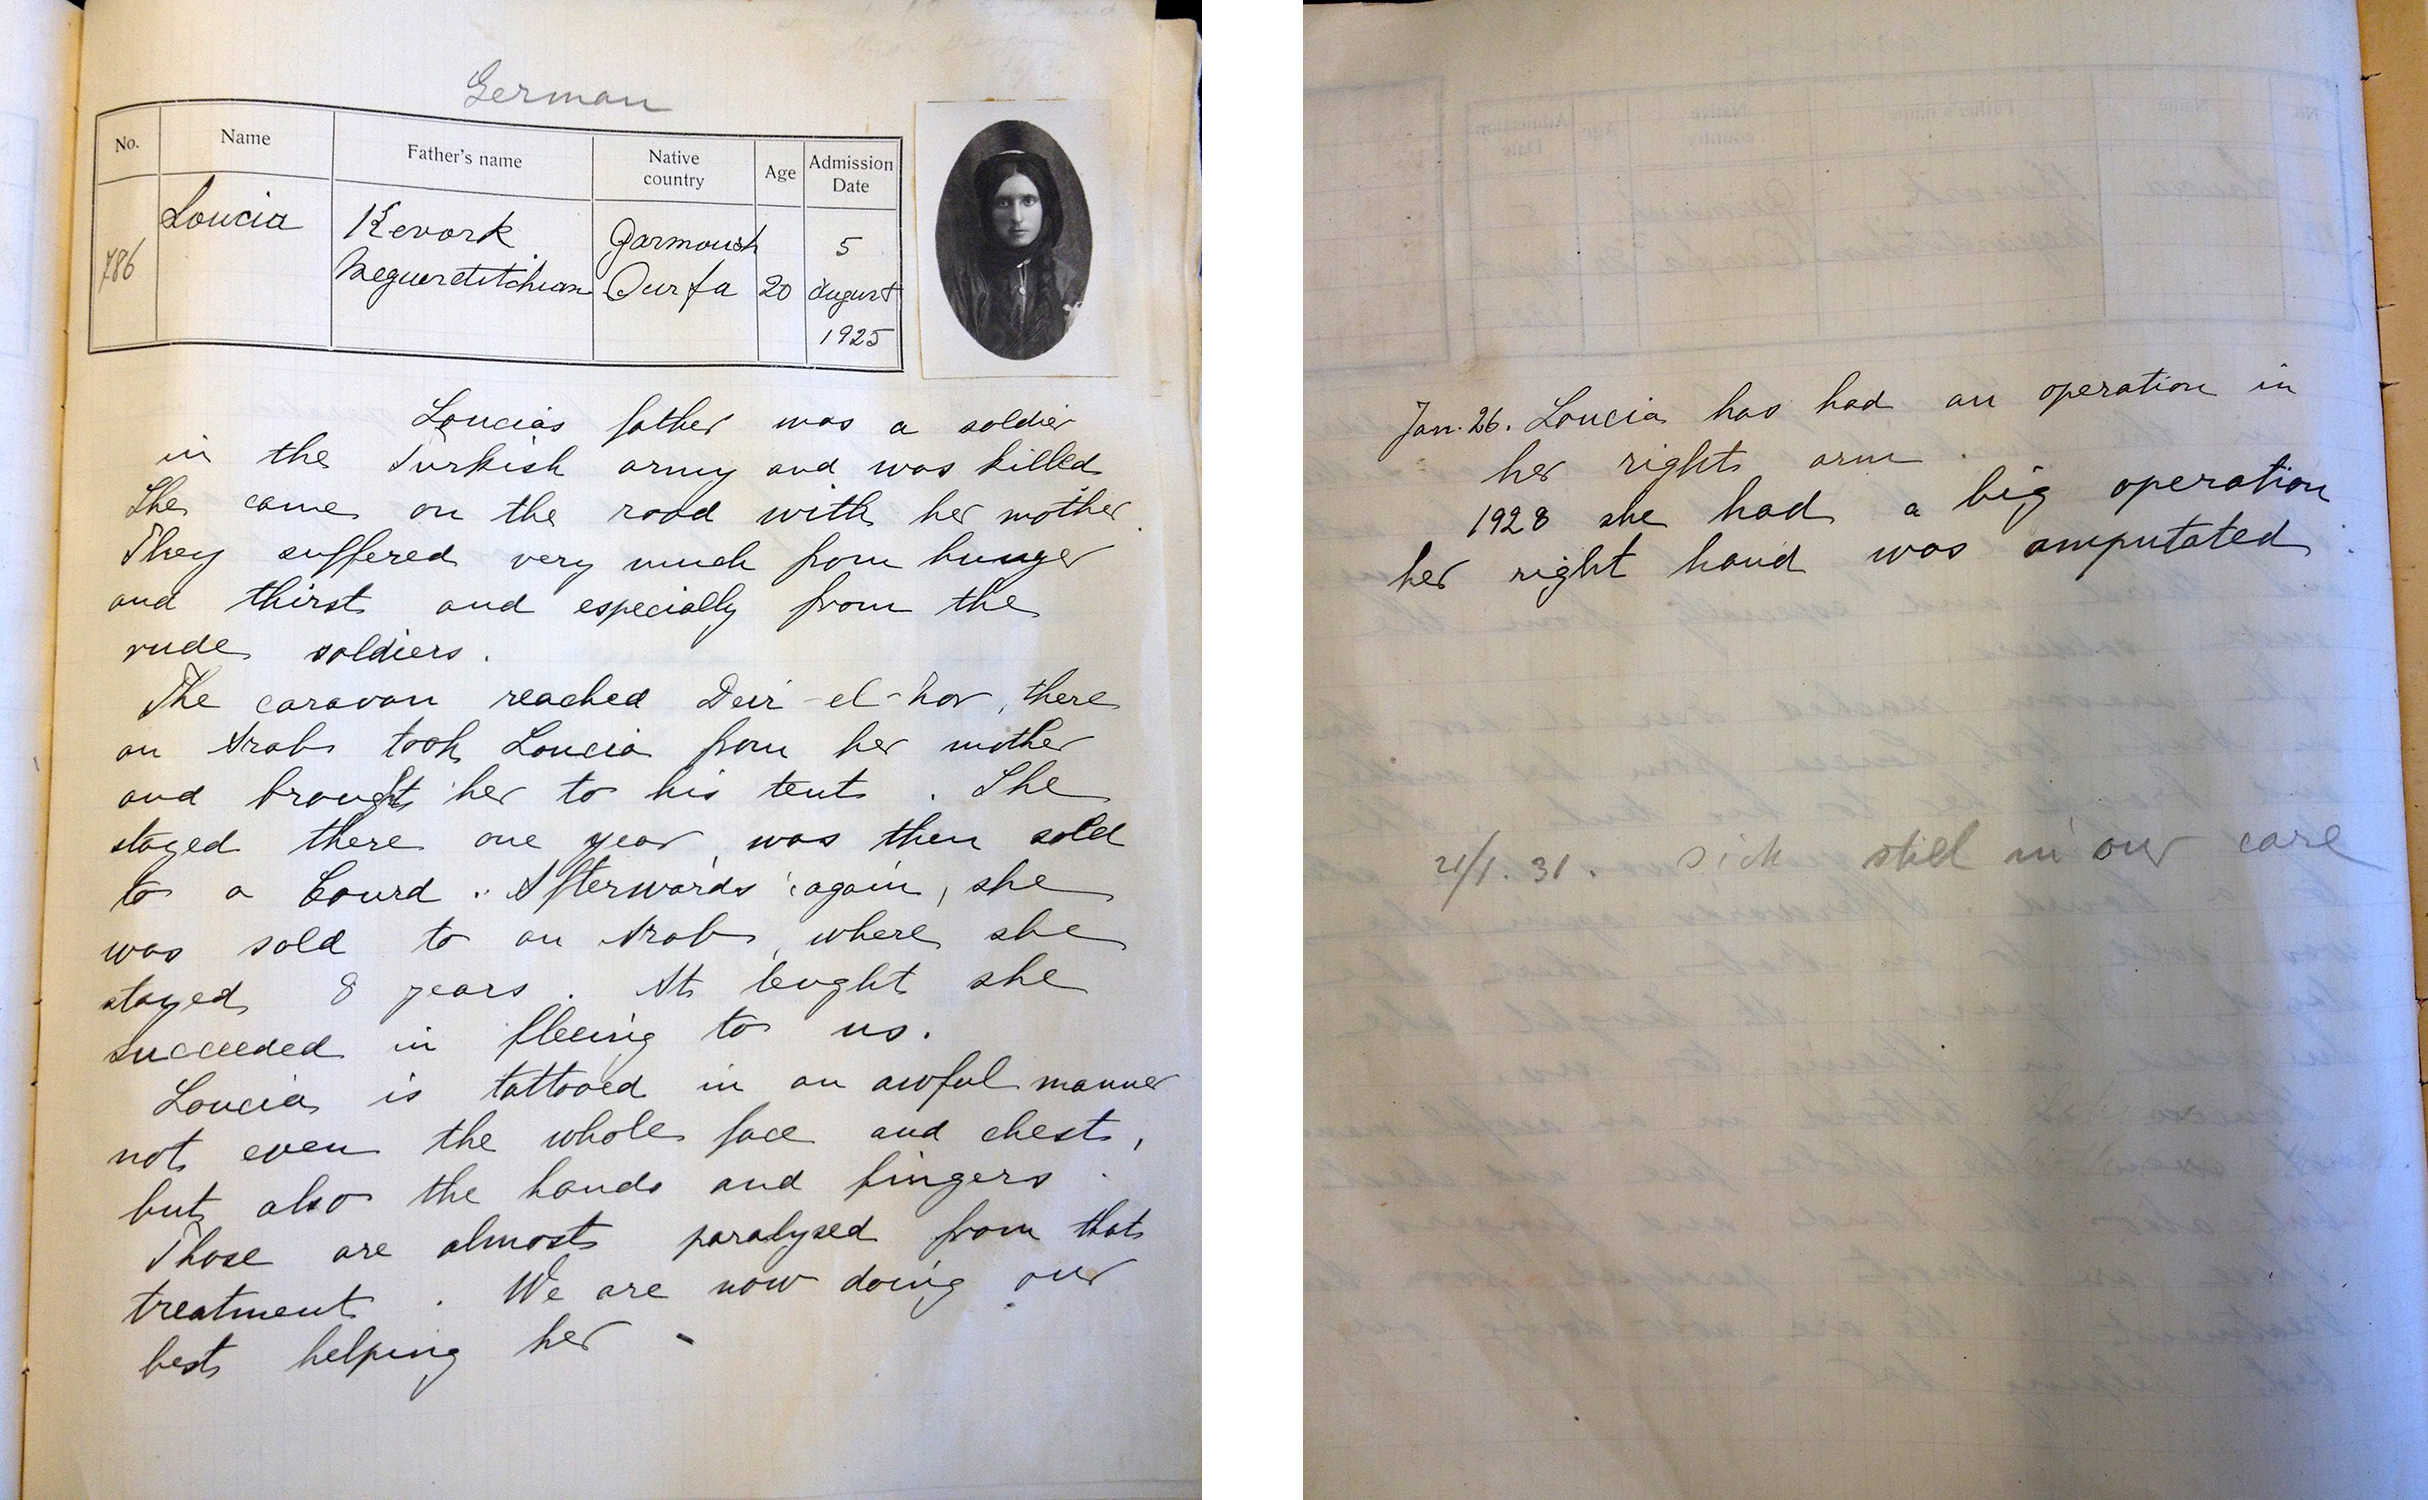 German
No. Name Father's name Native country Age Admission Date
786 Loucia Kevork Meguerditchian Garmoush Ourfa 20 5 August 1925
Loucias father was a soldier
in the Turkish army and was killed
She came on the road with her mother.
They suffered very much from hunger
and thirst and especially from the
rude soldiers.
The caravan reached Deir-el-Zor, there
an Arab took Loucia from her mother
and brought her to his tent. She
stayed there one year, was then sold
to a Courd. Afterwards again, she
was sold to an Arab, where she
stayed 8 years. At lenght she
succeeded in fleeing to us.
Loucia is tattooed in an awful manner
not even the whole face and chest,
but also the hands and fingers.
Those are almost paralyzed from that
treatment. We are now doing our
best helping her -
Jan. 26. Loucia has had an operation in
her right arm.
1928 she had a big operation
her right hand was amputated.
21/1. 31. Sick still in our care